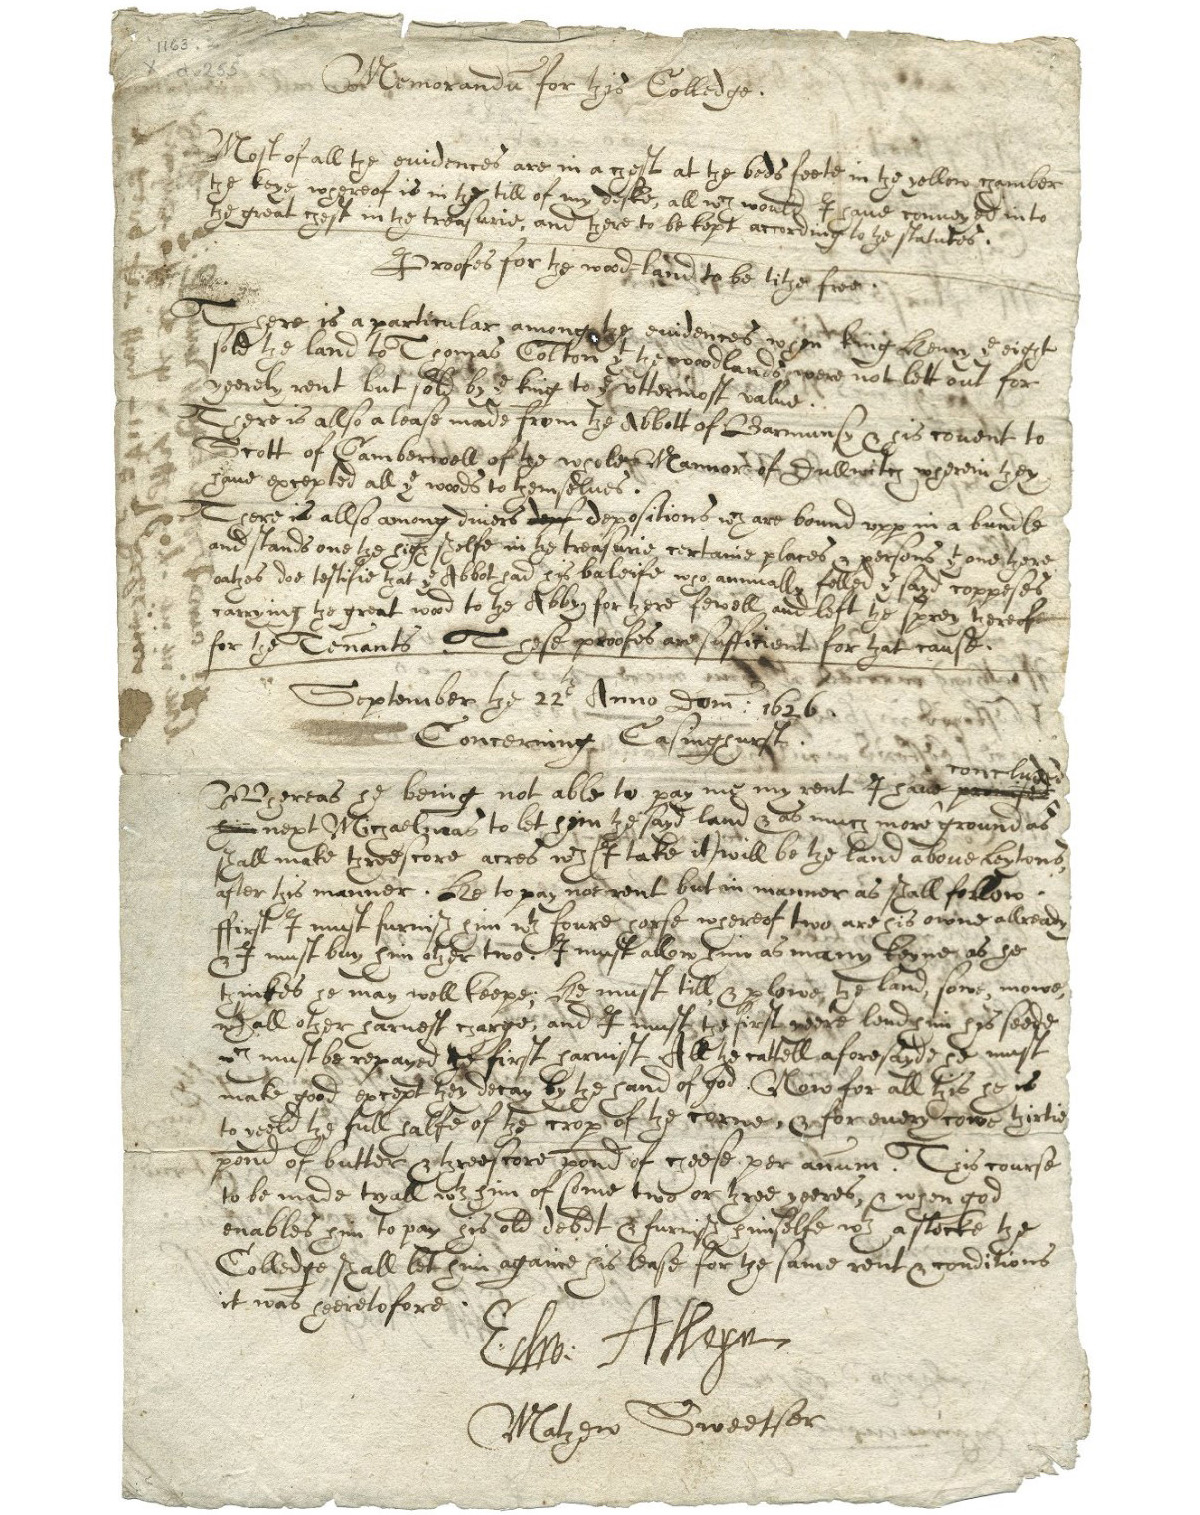 1163
X. d. 255
Memorandū for this Colledge.
Most of all the euidences are in a chest at the beds feete in the yellow chamber
the keye whereof is in the till of my deske, all wch would I haue conueyed into
the great chest in the treasurie, and there to be kept according to the statutes.
Proofes for the wood-land to be tithe free.
There is a particular among the euidences when king Henry ye eight
sold the land to Thomas Colton yt the woodlands were not lett out for
yeerely rent but sold by ye king to ye vttermost value.
There is allso a lease made from the Abbott of Barmunsy & his couent to
Scott of Camberwell of the whole Mannor of Dullwitch wherein they
haue excepted all ye woods to themselues.
There is allso among diuers depositions wch are bound vpp in a bundle
and stands one the high shelfe in the treasurie certaine places & persons yt one there
oathes doe testifie that ye Abbot had his baleife who annually felled ye sayd coppeses
carrying the great wood to the Abby for there fewell and left the sprey thereof
for the Tenants These proofes are sufficient for that cause.
September the 22th Anno Dom: 1626.
Concerning Casinghurst.
concluded
Whereas he being not able to pay me my rent I haue
next Michaelmas to let him the sayd land & as much more ground as
shall make threescore acres wch (I take it) will be the land aboue Leytons,
after this manner. He to pay noe rent but in manner as shall follow.
ffirst I must furnish him wth foure horse whereof two are his owne allready
& I must buy him other two. I must allow him as many keyne as he
thinkes he may well keepe; He must till, & plowe, the land, sowe, mowe,
wth all other haruest charge, and I must the first yeere lend him his seede
wch must be repayed the first haruist. All the cattell aforesayde he must
make good except they decay by the hand of god. Now for all this he is
to yeeld the full halfe of the crop of the corne, & for euery cowe thirtie
pond of butter & threescore pond of cheese per anum. This course
to be made tryall wth him of some two or three yeeres, & when god
enables him to pay his old debdt & furnish himselfe wth a stocke the
Colledge shall let him againe his lease for the same rent & conditions
it was heeretofore.
E: Alleyn
Mathew Sweetser